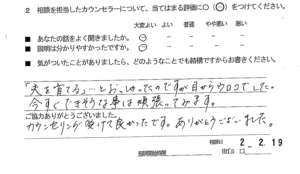 2 相談を担当したカウンセラーについて、当てはまる評価に○(○)をつけてください。
大変よい よい 普通 やや悪い 悪い
■ あなたの話をよく聞きましたか。 ○ − − − −
■ 説明は分かりやすかったですか。 ○ − − − −
■ 気がついたことがありましたら、どのようなことでも結構ですからお書きください。
「夫を育てる」…とおっしゃったのですが目からウロコでした。
今すぐできそうな事は頑張ってみます。
ご協力ありがとうございました。
カウンセリング受けて良かったです。ありがとうございました。
相談日 2 - 2. 19